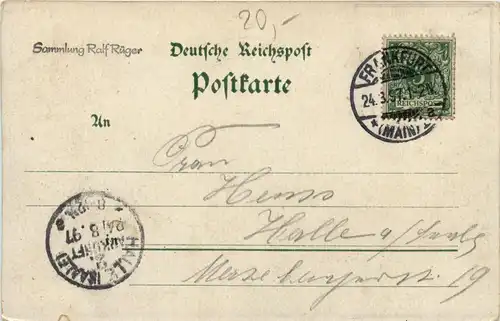 20,-
Sammlung Ralf Rüger
Deutsche Reichspost
Postkarte
An
FRANKFURT
24.3.97.1-2N.
(MAIN) 1. a.
REICHSPOST
Frau
Heuss
Halle a/Saale
Merseburgerst 19
HALLE (SAALE)
24 3 97